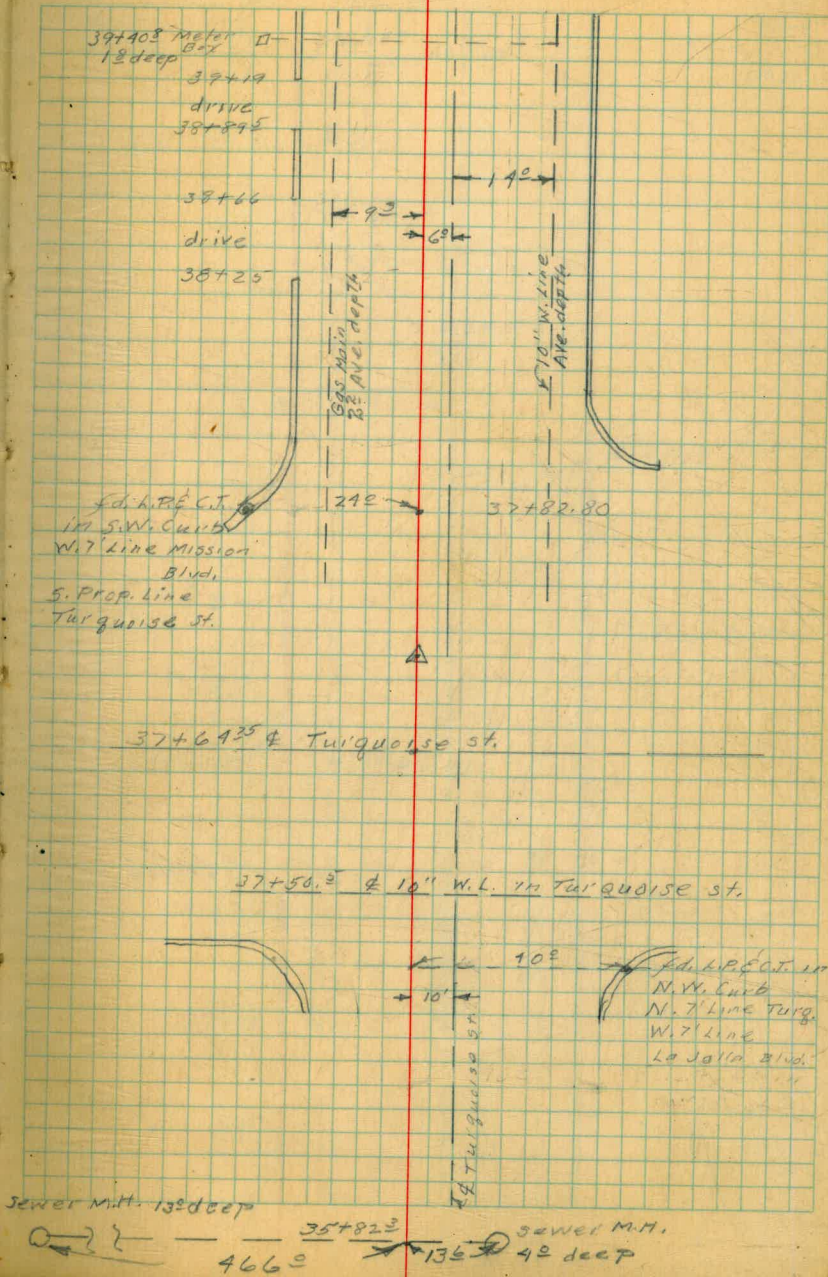 39+40⁸ Meter
Box
1⁸ deep
39+19
drive
38+89⁵
38+66
drive
38+25
14⁰
9⁵
6⁰
Gas Main
2² Ave. depth
℄ 10" W. Line
Ave. depth
fd. L.P. & C.T.
in S.W. Curb
W. 7' Line Mission
Blvd.
S. Prop. Line
Turquoise St.
24⁰
37+82.80
37+64²⁵ ℄ Turquoise St.
37+50.⁵ ℄ 10" W.L. in Turquoise St.
40⁰
10'
fd. L.P. & C.T. in
N.W. Curb
N. 7' Line Turq.
W. 7' Line
La Jolla Blvd.
℄ Turquoise St.
Sewer M.H. 13⁰ deep
35+82³
466⁰
13⁶
Sewer M.H.
4⁰ deep